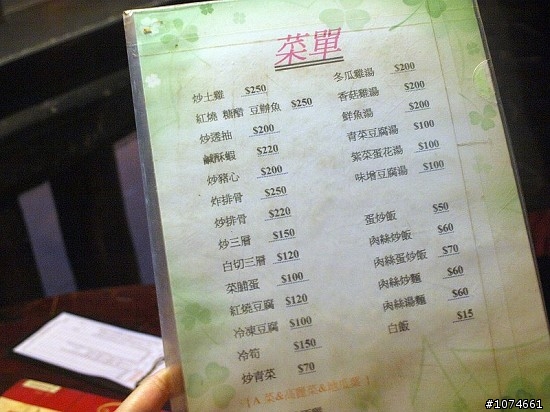 菜單
炒土雞 $250
紅燒 糖醋 豆瓣魚 $250
炒透抽 $200
鹹酥蝦 $220
炒豬心 $200
炸排骨 $250
炒排骨 $220
炒三層 $150
白切三層 $120
菜脯蛋 $100
紅燒豆腐 $120
冷凍豆腐 $100
冷筍 $150
炒青菜 $70
冬瓜雞湯 $200
香菇雞湯 $200
鮮魚湯 $200
青菜豆腐湯 $100
紫菜蛋花湯 $100
味增豆腐湯 $100
蛋炒飯 $50
肉絲炒飯 $60
肉絲蛋炒飯 $70
肉絲炒麵 $60
肉絲湯麵 $60
白飯 $15
#1074661